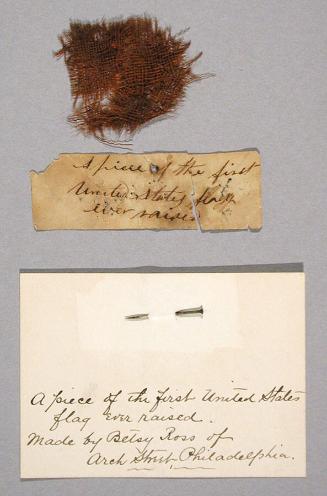 A piece of the first
United States flag
ever raised
A piece of the first United States
flag ever raised.
Made by Betsy Ross of
Arch Street Philadelphia.